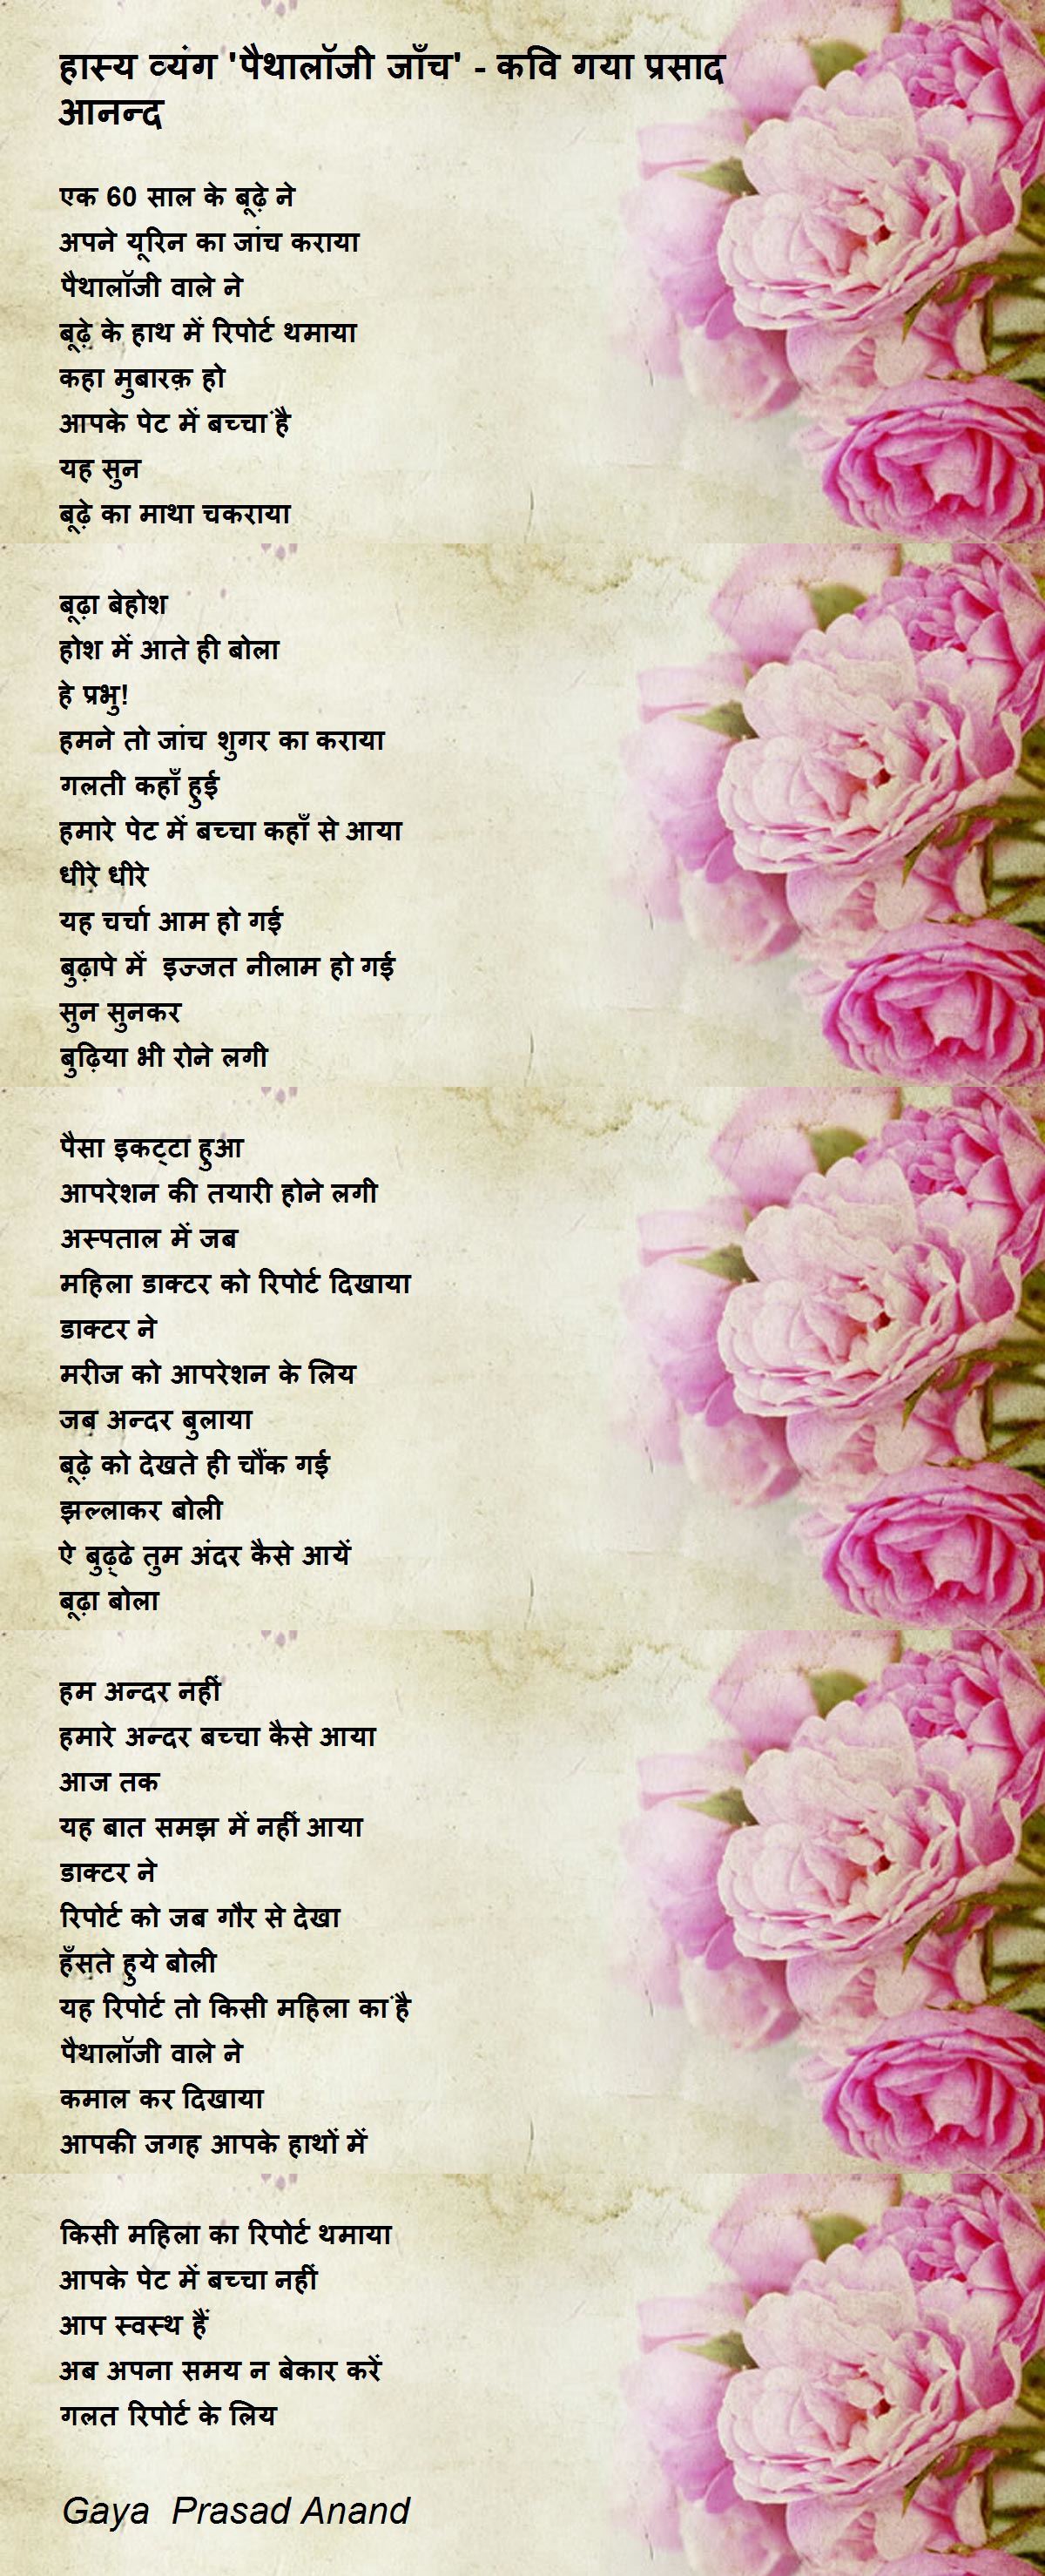 हास्य व्यंग 'पैथालॉजी जाँच' - कवि गया प्रसाद
आनन्द
एक 60 साल के बूढ़े ने
अपने यूरिन का जांच कराया
पैथालॉजी वाले ने
बूढ़े के हाथ में रिपोर्ट थमाया
कहा मुबारक़ हो
आपके पेट में बच्चां है
यह सुन
बूढ़े का माथा चकराया
बूढ़ा बेहोश
होश में आते ही बोला
हे प्रभु!
हमने तो जांच शुगर का कराया
गलती कहाँ हुई
हमारे पेट में बच्चा कहाँ से आया
धीरे धीरे
यह चर्चा आम हो गई
बुढ़ापे में  इज्जत नीलाम हो गई
सुन सुनकर
बुढ़िया भी रोने लगी
पैसा इकट्टा हुआ
आपरेशन की तयारी होने लगी
अस्पताल में जब
महिला डाक्टर को रिपोर्ट दिखाया
डाक्टर ने
मरीज को आपरेशन के लिय
जब अन्दर बुलाया
बूढ़े को देखते ही चौंक गई
झल्लाकर बोली
ऐ बुढ़्ढे तुम अंदर कैसे आयें
बूढ़ा बोला
हम अन्दर नहीं
हमारे अन्दर बच्चा कैसे आया
आज तक
यह बात समझ में नहीं आया
डाक्टर ने
रिपोर्ट को जब गौर से देखा
हँसते हुये बोली
यह रिपोर्ट तो किसी महिला कां है
पैथालॉजी वाले ने
कमाल कर दिखाया
आपकी जगह आपके हाथों में
किसी महिला का रिपोर्ट थमाया
आपके पेट में बच्चा नहीं
आप स्वस्थ हैं
अब अपना समय न बेकार करें
गलत रिपोर्ट के लिय
Gaya  Prasad Anand